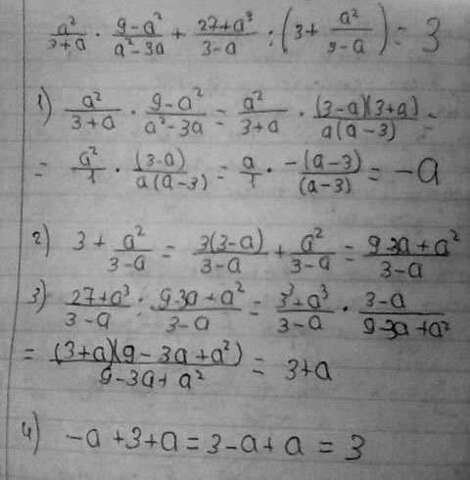 a²/(3+a) · (9-a²)/(a²-3a) + (27+a³)/(3-a) : (3+ a²/(3-a)) = 3
1) a²/(3+a) · (9-a²)/(a²-3a) = a²/(3+a) · (3-a)(3+a)/(a(a-3)) =
= a²/1 · (3-a)/(a(a-3)) = a/1 · -(a-3)/(a-3) = -a
2) 3 + a²/(3-a) = 3(3-a)/(3-a) + a²/(3-a) = (9-3a+a²)/(3-a)
3) (27+a³)/(3-a) : (9-3a+a²)/(3-a) = (3³+a³)/(3-a) · (3-a)/(9-3a+a²)
= (3+a)(9-3a+a²)/(9-3a+a²) = 3+a
4) -a+3+a = 3-a+a = 3